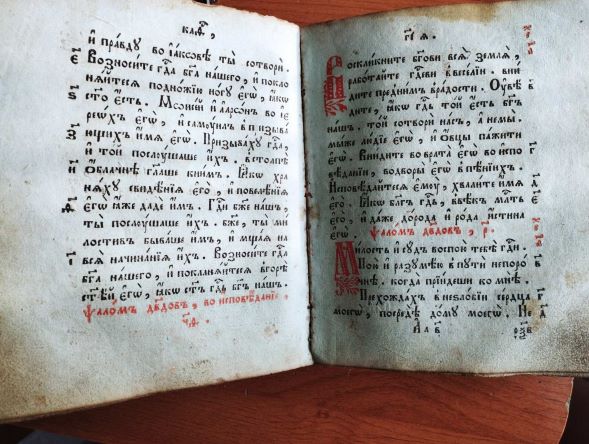 каѳ҃,
и҆ пра́вдꙋ во і҆а́кѡвѣ ты̀ сотворѝ.
є҃ Возноси́те гдⷭ҇а бг҃а на́шего, и҆ покло
нѧ́йтесѧ подно́жїю но́гꙋ є҆гѡ̀, ꙗ҆́кѡ
ст҃о є҆́сть. Мѡѷсе́й и҆ а҆арѡ́нъ во і҆е
ре́ѣхъ є҆гѡ̀, и҆ самꙋи́лъ в̾ призыва́
ющихъ и҆́мѧ є҆гѡ̀. Призыва́хꙋ гдⷭ҇а,
и҆ то́й послꙋ́шаше и҆́хъ. в̾ столпѣ̀
ѡ҆́блачнѣ гл҃аше к̾ ни́мъ. Ꙗ҆́кѡ хра
нѧ́хꙋ свидѣ́нїѧ є҆гѡ̀, и҆ повелѣ́нїѧ
є҆гѡ̀ ꙗ҆́же дадѐ и҆́мъ. Гдⷭ҇и бж҃е на́шъ,
ты̀ послꙋ́шаше и҆́хъ. бж҃е, ты̀ ми́
лостивъ быва́ше и҆́мъ, и҆ мща́ѧ на
всѧ̀ начина́нїѧ и҆́хъ. Возноси́те гдⷭ҇а
бг҃а на́шего, и҆ поклонѧ́йтесѧ в̾ горѣ̀
ст҃ѣ́й є҆гѡ̀, ꙗ҆́кѡ ст҃ъ гдⷭ҇ь бг҃ъ на́шъ.
ѱало́мъ дв҃довъ, во и҆сповѣ́данїе,
ч҃ѳ.
Воскли́кните бг҃ови всѧ̀ землѧ̀,
рабо́тайте гдⷭ҇еви в̾ весе́лїи. вни́
дите пред̾ ни́мъ в̾ ра́дости. Оу҆вѣ́
дите, ꙗ҆́кѡ гдⷭ҇ь то́й є҆́сть бг҃ъ
на́шъ. то́й сотворѝ на́съ, а҆ не мы̀.
мы́ же лю́дїе є҆гѡ̀, и҆ ѻ҆́вцы па́жити
є҆гѡ̀. Вни́дите во врата̀ є҆гѡ̀ во и҆спо
вѣ́данїи, во дворы̀ є҆гѡ̀ в̾ пѣ́нїихъ.
И҆сповѣ́дайтесѧ є҆мꙋ̀, хвали́те и҆́мѧ
є҆гѡ̀. Ꙗ҆́кѡ бл҃гъ гдⷭ҇ь, в̾ вѣ́къ млⷭ҇ть
є҆гѡ̀, и҆ да́же до ро́да и҆ ро́да и҆́стина
є҆гѡ̀. ѱало́мъ дв҃довъ, р҃.
Ми́лость и҆ сꙋ́дъ воспою̀ тебѣ̀ гдⷭ҇и.
Пою̀ и҆ разꙋмѣ́ю в̾ пꙋтѝ непоро́
чнѣ. когда̀ прїи́деши ко мнѣ̀.
Прехожда́хъ в̾ неѕло́бїи се́рдца
моегѡ̀, посредѣ̀ до́мꙋ моегѡ̀. Не